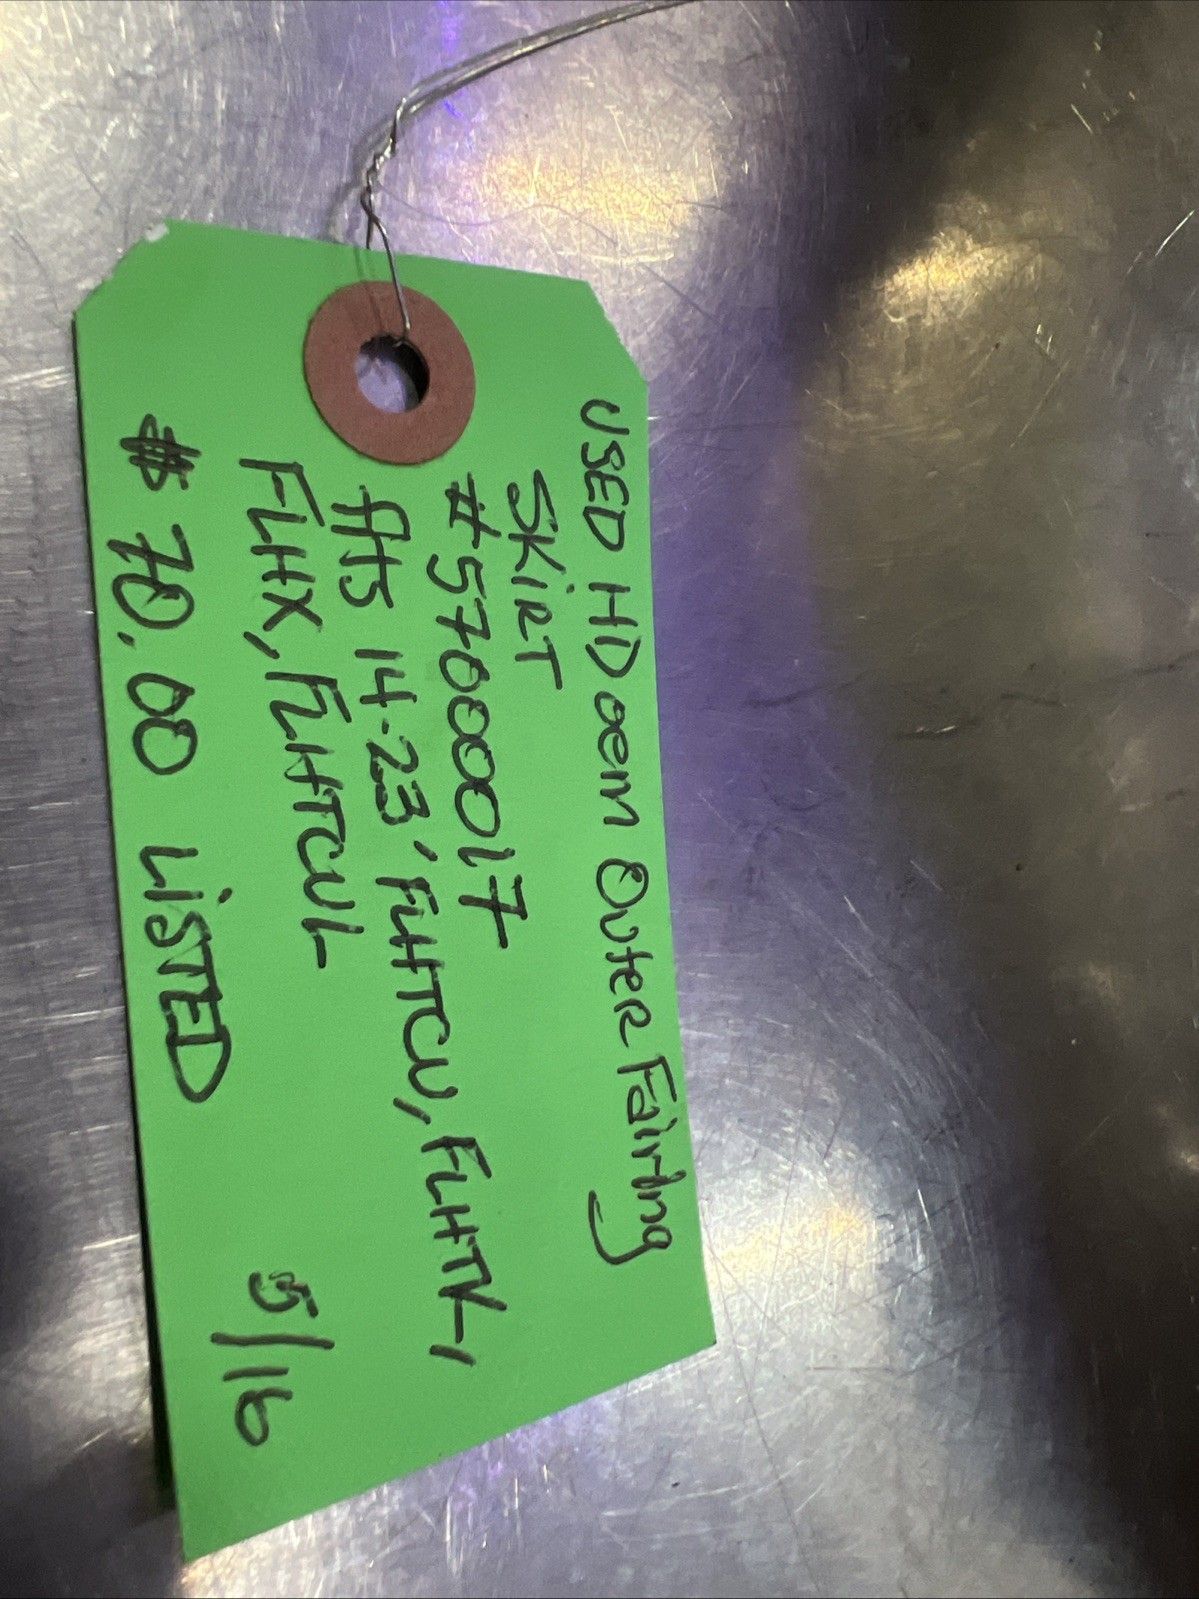 USED HD oem Outer Fairing
SKiRT
#57000017
fits 14-23', FLHTCU, FLHTK,
FLHX, FLHTCUL
$70.00 LiSTED 5/16